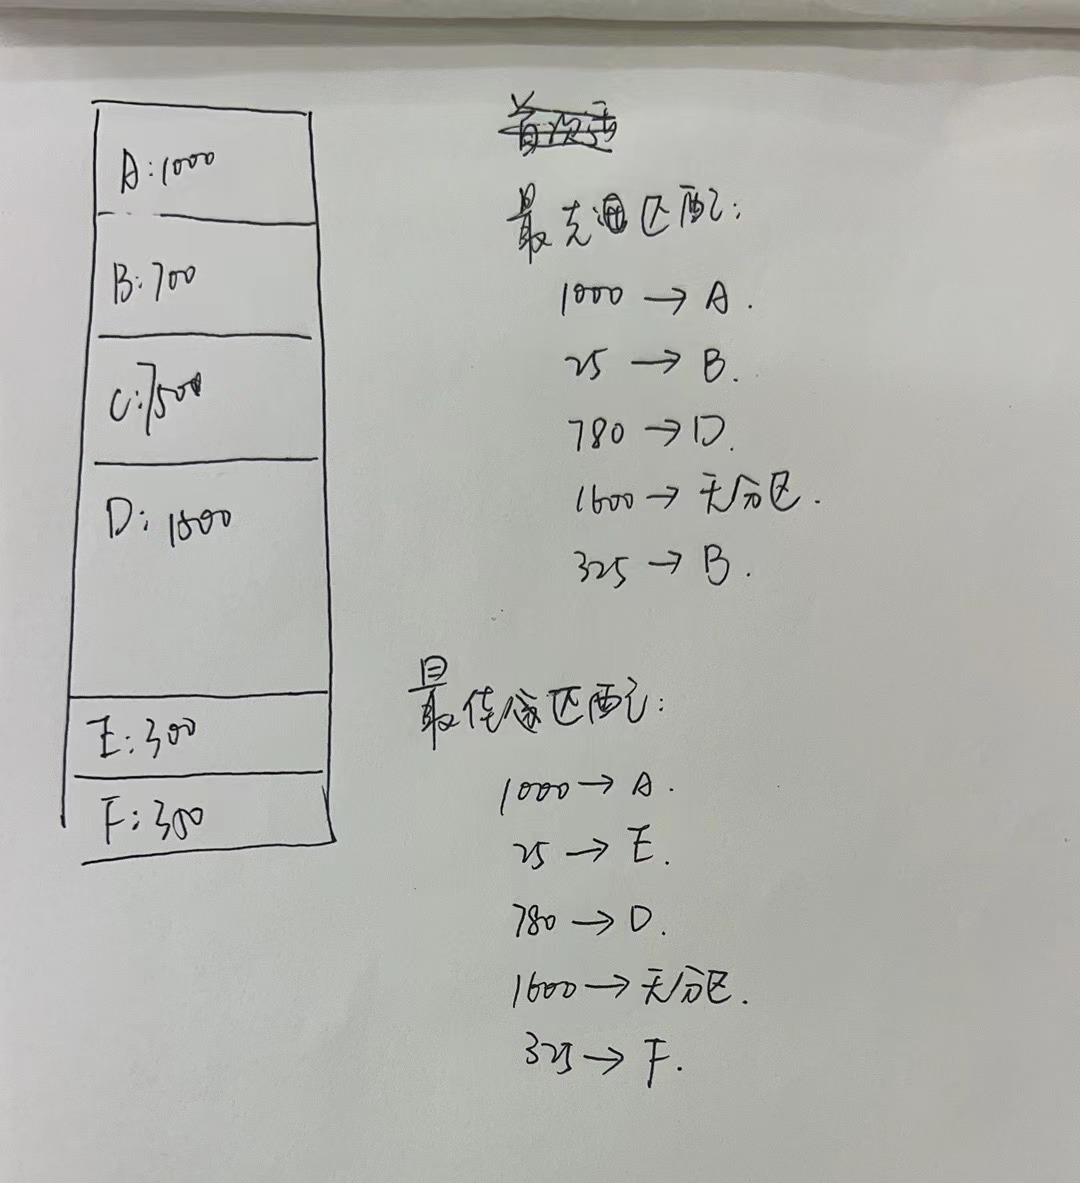 A:1000
B:700
C:500
D:1500
E:300
F:300
最先匹配:
1000→A.
25→B.
780→D.
1600→无分区.
325→B.
最佳匹配:
1000→A.
25→E.
780→D.
1600→无分区.
325→F.